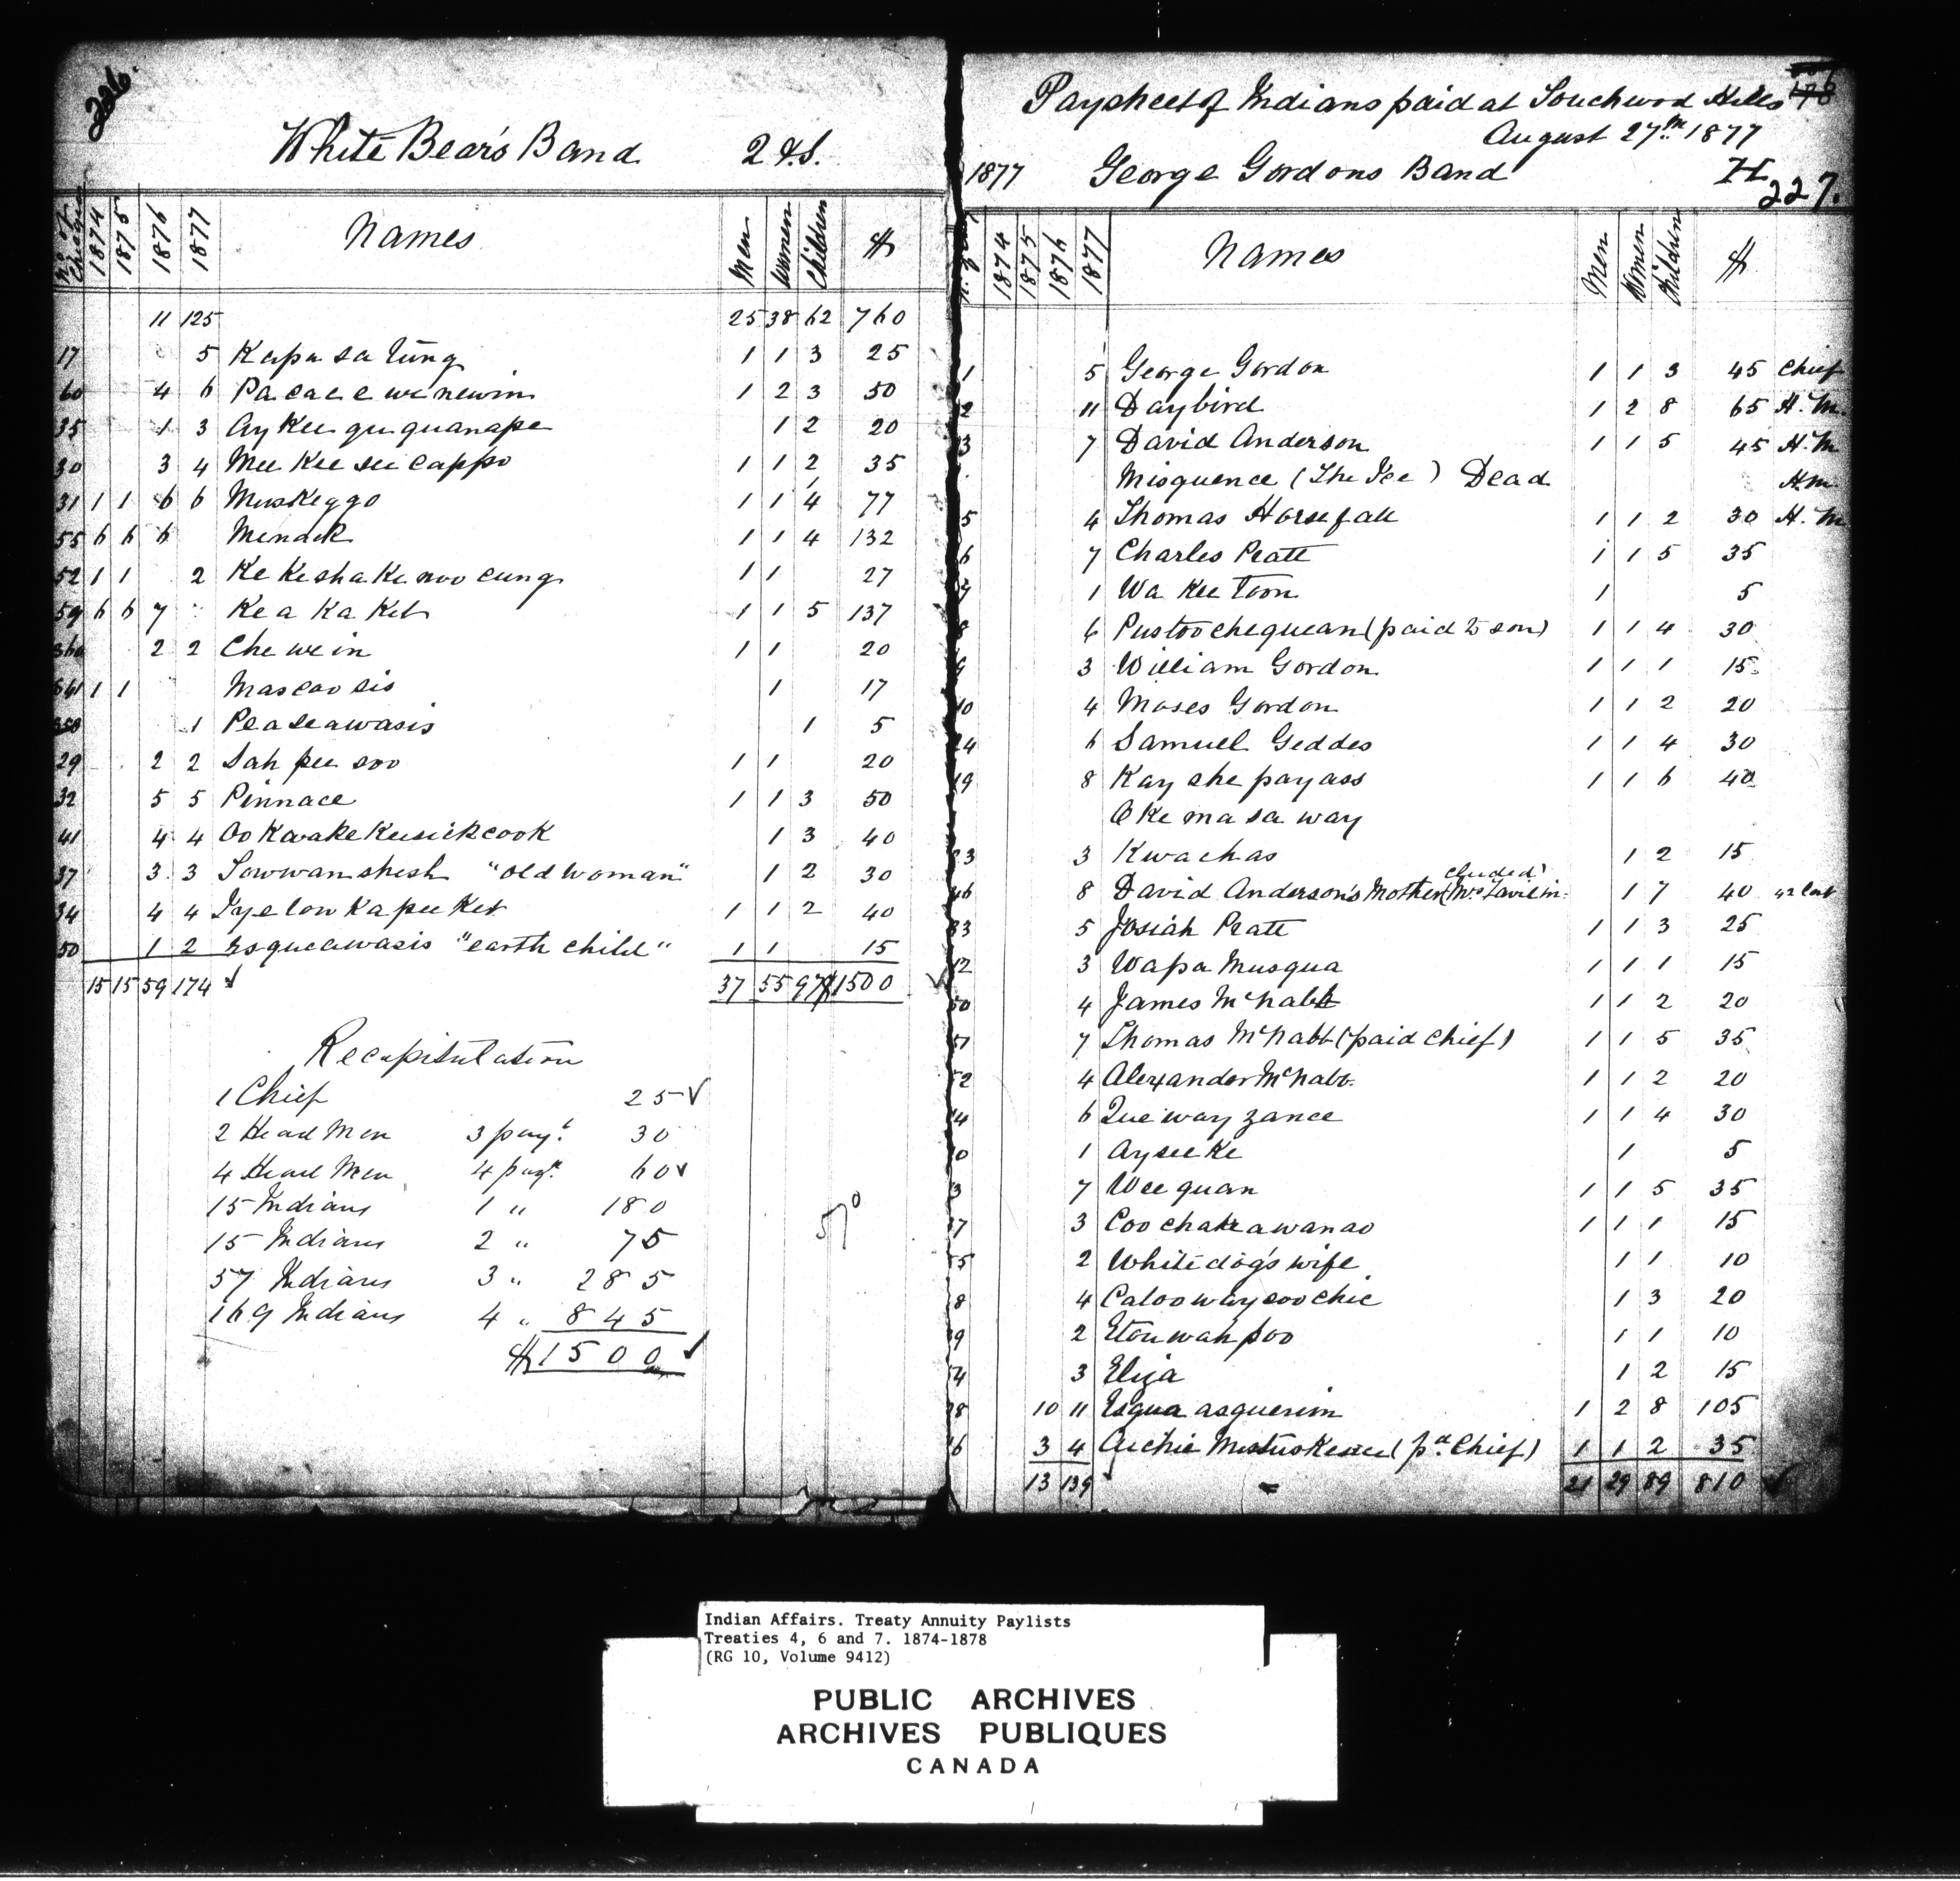 226.
White Bear's Band 2 & S.
No. of Cheque 1874 1875 1876 1877 Names Men Women Children $
11 125 25 38 62 760
17 5 Kapa sa tung 1 1 3 25
60 4 6 Pa cace e we newin 1 2 3 50
35 1 3 Ay Kee gu quanape 1 2 20
30 3 4 Mee Kee see cappo 1 1 2 35
31 1 1 6 6 Muskeggo 1 1 4 77
55 6 6 6 Menack 1 1 4 132
52 1 1 2 Ke Ke sha Ke noo cung 1 1 27
59 6 6 7 Ke a Ka Ket 1 1 5 137
360 2 2 Che we in 1 1 20
361 1 1 Mascoo sis 1 17
358 1 Pea se awasis 1 5
29 2 2 Sah pee soo 1 1 20
32 5 5 Pinnace 1 1 3 50
41 4 4 Oo Kwake Keesick cook 1 3 40
37 3 3 Sowwanshesh "Old Woman" 1 2 30
34 4 4 Iye low Ka pee Ket 1 1 2 40
50 1 2 Esqueawasis "earth child" 1 1 15
15 15 59 174 37 55 97 $1500
Recapitulation
1 Chief 25
2 Head Men 3 payt. 30
4 Head Men 4 payt. 60
15 Indians 1 " 180
15 Indians 2 " 75
57 Indians 3 " 285
169 Indians 4 " 845
$1500
570
Paysheet of Indians paid at Touchwood Hills 178
August 27th 1877
1877 George Gordons Band H
227.
1874 1875 1876 1877 Names Men Women Children $
1 5 George Gordon 1 1 3 45 Chief
2 11 Daybird 1 2 8 65 H.M.
3 7 David Anderson 1 1 5 45 H.M
Misquence (The Ice) Dead H.M.
5 4 Thomas Horsefall 1 1 2 30 H.M
6 7 Charles Pratt 1 1 5 35
7 1 Wa Kee Toon 1 5
8 6 Pustoochequean (paid to son) 1 1 4 30
9 3 William Gordon 1 1 1 15
10 4 Moses Gordon 1 1 2 20
24 6 Samuel Geddes 1 1 4 30
19 8 Kay she pay ass 1 1 6 40
O Ke ma sa way
23 3 Kwachas 1 2 15
8 David Anderson's Mother 1 7 40
33 5 Josiah Pratt 1 1 3 25
12 3 Wapa Musqua 1 1 1 15
50 4 James McNabb 1 1 2 20
51 7 Thomas McNabb (paid Chief) 1 1 5 35
52 4 Alexander McNabb 1 1 2 20
14 6 Que way zance 1 1 4 30
0 1 Aysee Ke 1 5
3 7 Wee quan 1 1 5 35
7 3 Coo chakeawanao 1 1 1 15
5 2 White dog's wife 1 1 10
8 4 Catoowaycoochie 1 3 20
9 2 Etouwahpoo 1 1 10
4 3 Eliza 1 2 15
8 10 11 Esqua asquerim 1 2 8 105
6 3 4 Archie (pd. Chief) 1 1 2 35
13 139 21 29 89 810
Indian Affairs. Treaty Annuity Paylists
Treaties 4, 6 and 7. 1874-1878
(RG 10, Volume 9412)
PUBLIC ARCHIVES
ARCHIVES PUBLIQUES
CANADA